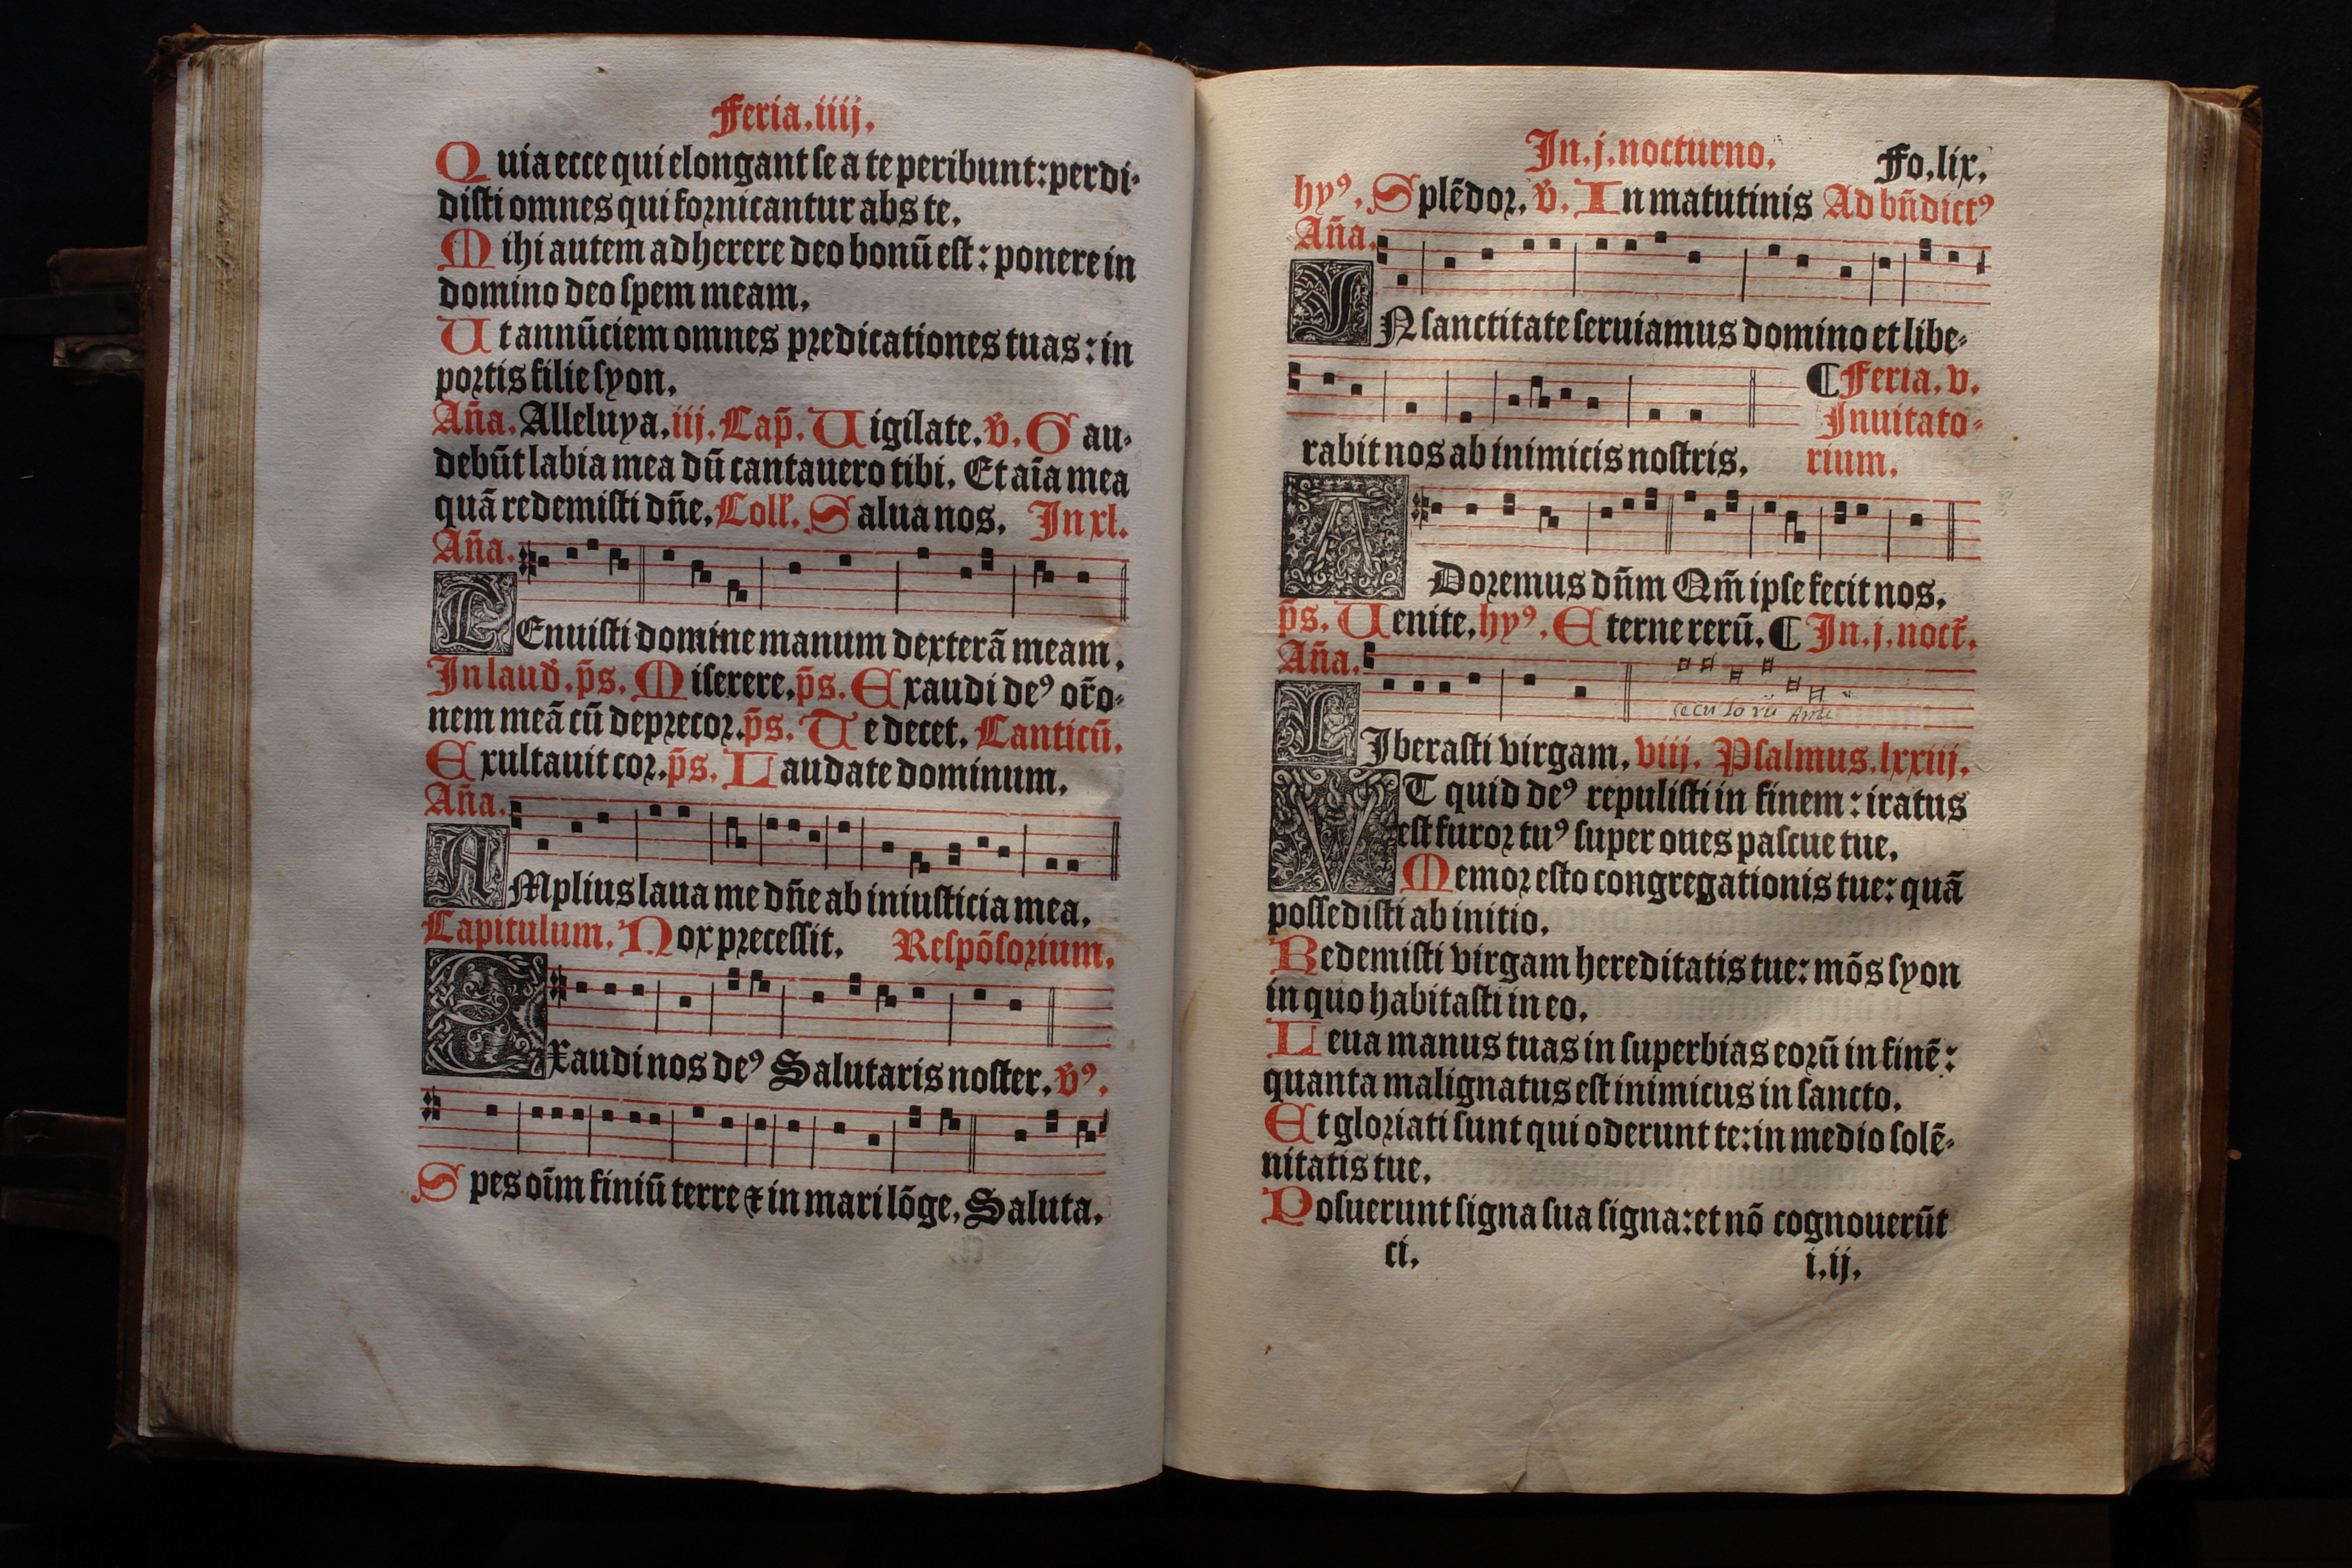 Feria.iiij.
Quia ecce qui elongant se a te peribunt: perdi-
disti omnes qui fornicantur abs te.
Mihi autem adherere deo bonū est: ponere in
domino deo spem meam.
Ut annūciem omnes predicationes tuas: in
portis filie syon.
Aña. Alleluya.iij. Cap̄. Uigilate. v̄. Gau-
debūt labia mea dū cantauero tibi. Et aīa mea
quā redemisti dñe. Coll'. Salua nos. In xl.
Aña.
TEnuisti domine manum dexterā meam.
In laud̄. p̄s. Miserere. p̄s. Exaudi deꝰ or̄o-
nem meā cū deprecor. p̄s. Te decet. Canticū.
Exultauit cor. p̄s. Laudate dominum.
Aña.
AMplius laua me dñe ab iniusticia mea.
Capitulum. Nox precessit. Respōsorium.
Exaudi nos deꝰ Salutaris noster. v̄ꝰ.
Spes oīm finiū terre ⁊ in mari lōge. Saluta.
In.j.nocturno. Fo.lix.
hyꝰ. Splēdor. v̄. In matutinis Ad bn̄dictꝰ
Aña.
IN sanctitate seruiamus domino et libe-
¶ Feria.v.
Inuitato-
rabit nos ab inimicis nostris. rium.
ADoremus dn̄m Qm̄ ipse fecit nos.
p̄s. Uenite. hyꝰ. Eterne rerū. ¶ In.j.noct̄.
Aña.
seculorū Ame
LIberasti virgam. viij. Psalmus.lxxiij.
VT quid deꝰ repulisti in finem: iratus
est furor tuꝰ super oues pascue tue.
Memor esto congregationis tue: quā
possedisti ab initio.
Redemisti virgam hereditatis tue: mōs syon
in quo habitasti in eo.
Leua manus tuas in superbias eorū in finē:
quanta malignatus est inimicus in sancto.
Et gloriati sunt qui oderunt te: in medio solē-
nitatis tue.
Posuerunt signa sua signa: et nō cognouerūt
ci. i.ij.